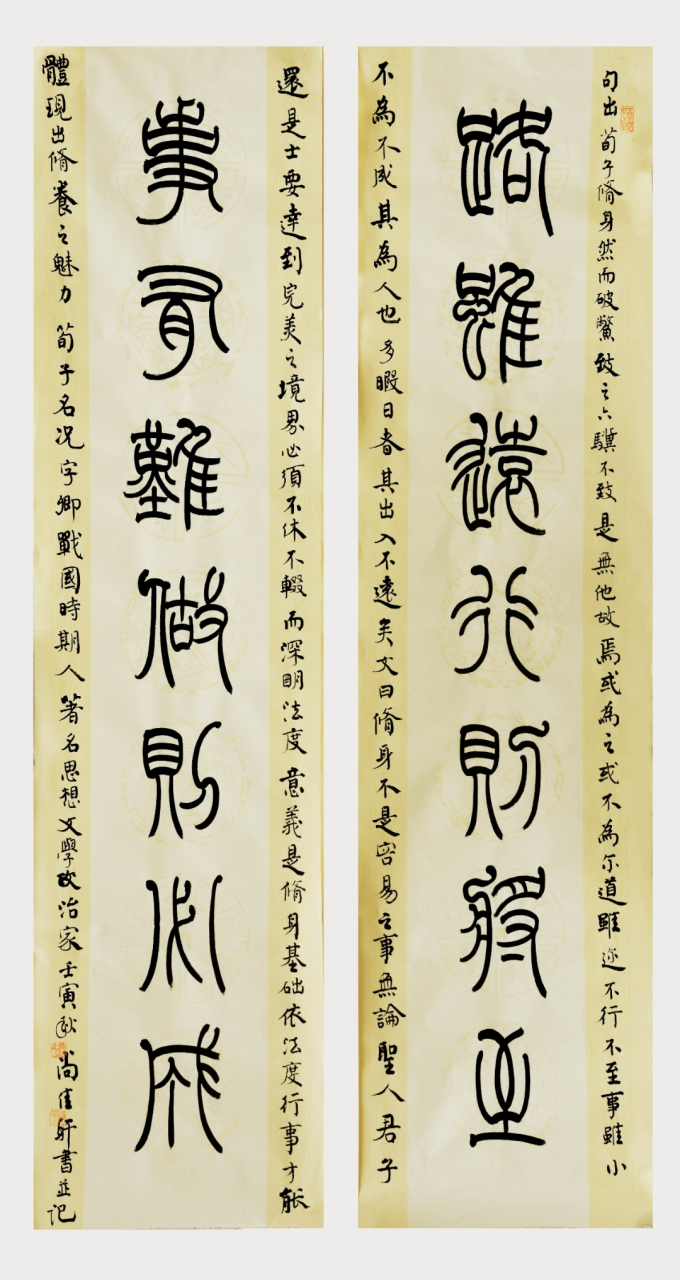 句出荀子脩身然而破鱉致之六驥不致是無他故焉或為之或不為尔道雖迩不行不至事雖小
路雖遠行則將至
不為不成其為人也多暇日者其出入不遠矣文曰脩身不是容易之事無論聖人君子
還是士要達到完美之境界必須不休不輟而深明法度意義是脩身基礎依法度行事才能
事有難做則必成
體現出脩養之魅力荀子名况字卿戰國時期人著名思想文學政治家壬寅秋尚佳軒書並記